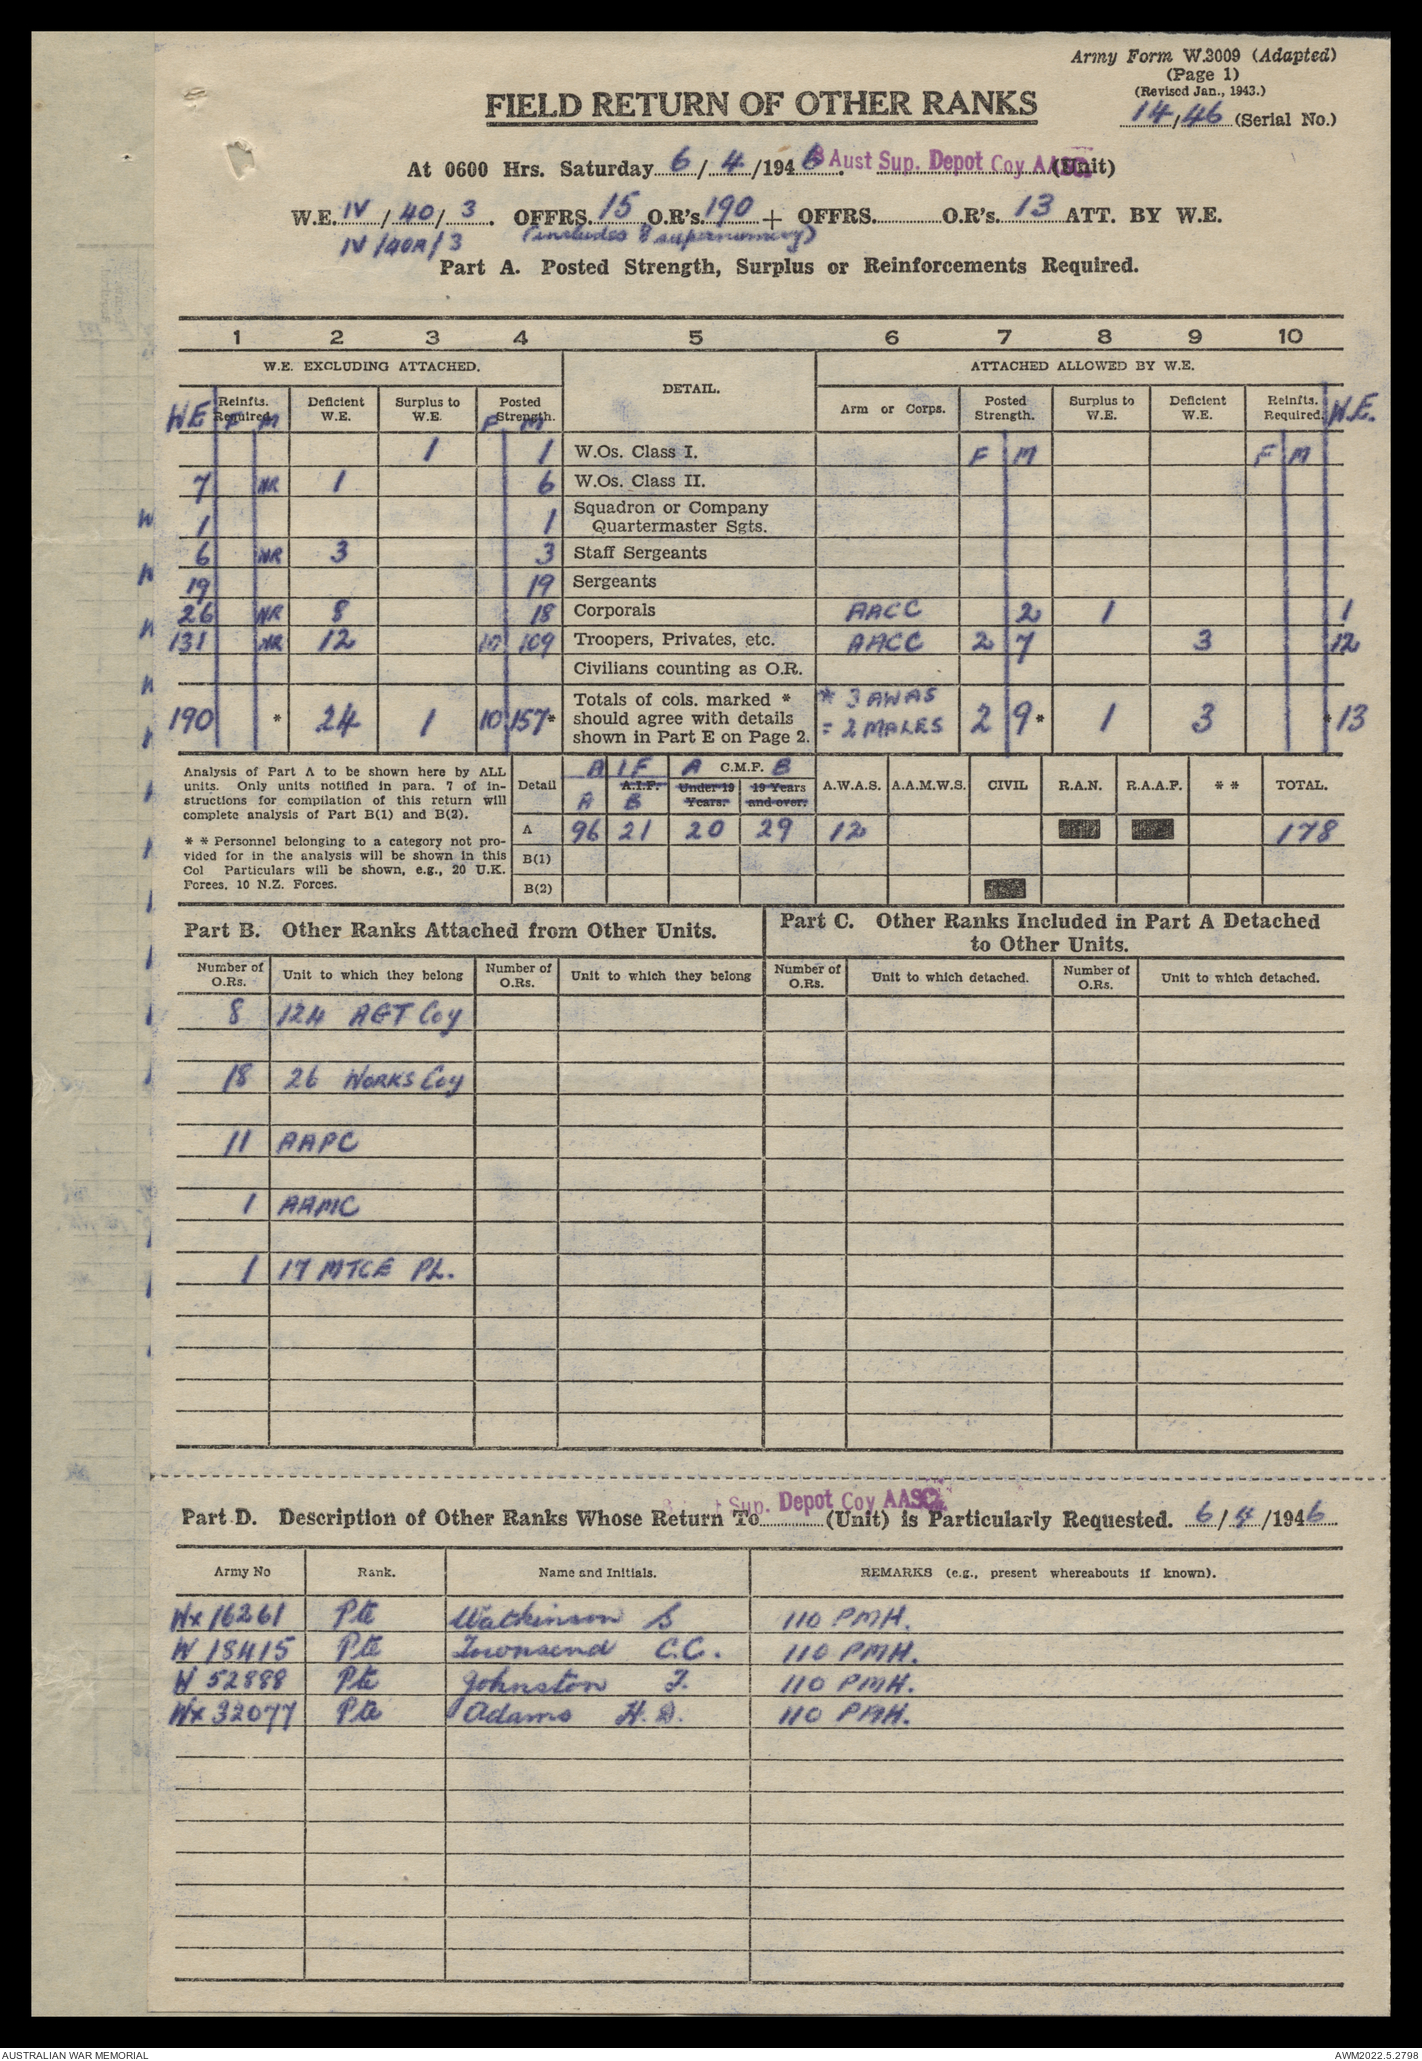 Army Form W.3009 (Adapted)
(Page 1)
(Revised Jan., 1943.)
FIELD RETURN OF OTHER RANKS
14/46 (Serial No.)
At 0600 Hrs. Saturday 6/4/1946. 8 Aust Sup. Depot Coy AASC (Unit)
W.E. IV/40/3. OFFRS. 15 O.R's. 190 + OFFRS. O.R's. 13 ATT. BY W.E.
IV/40A/3 (includes 8 supernumery)
Part A. Posted Strength, Surplus or Reinforcements Required.
1 2 3 4 5 6 7 8 9 10
W.E. EXCLUDING ATTACHED. DETAIL. ATTACHED ALLOWED BY W.E.
WE Reinfts. Required. F M Deficient W.E. Surplus to W.E. Posted Strength. F M Arm or Corps. Posted Strength. Surplus to W.E. Deficient W.E. Reinfts. Required. W.E.
1 1 W.Os. Class I. F M F M
7 NR 1 6 W.Os. Class II.
1 1 Squadron or Company Quartermaster Sgts.
6 NR 3 3 Staff Sergeants
19 19 Sergeants
26 NR 8 18 Corporals AACC 2 1 1
131 NR 12 10 109 Troopers, Privates, etc. AACC 2 7 3 12
Civilians counting as O.R.
190 * 24 1 10 157* Totals of cols. marked * should agree with details shown in Part E on Page 2. * 3 AWAS = 2 MALES 2 9* 1 3 * 13
Analysis of Part A to be shown here by ALL
units. Only units notified in para. 7 of in-
structions for compilation of this return will
complete analysis of Part B(1) and B(2).
* * Personnel belonging to a category not pro-
vided for in the analysis will be shown in this
Col Particulars will be shown, e.g., 20 U.K.
Forces, 10 N.Z. Forces.
Detail A IF A.I.F. A B A C.M.F. B Under 19 Years. 19 Years and over. A.W.A.S. A.A.M.W.S. CIVIL R.A.N. R.A.A.F. * * TOTAL.
A 96 21 20 29 12 178
B(1)
B(2)
Part B. Other Ranks Attached from Other Units.
Part C. Other Ranks Included in Part A Detached
to Other Units.
Number of O.Rs. Unit to which they belong Number of O.Rs. Unit to which they belong Number of O.Rs. Unit to which detached. Number of O.Rs. Unit to which detached.
8 124 AGT Coy
18 26 WORKS Coy
11 AAPC
1 AAMC
1 17 MTCE PL.
Part D. Description of Other Ranks Whose Return To Sup. Depot Coy AASC (Unit) is Particularly Requested. 6/4/1946
Army No Rank. Name and Initials. REMARKS (e.g., present whereabouts if known).
Wx 16261 Pte Watkinson S 110 PMH.
W 18415 Pte Townsend C.C. 110 PMH.
W 52888 Pte Johnston J. 110 PMH.
Wx 32077 Pte Adams H.D. 110 PMH.
AUSTRALIAN WAR MEMORIAL
AWM2022.5.2798